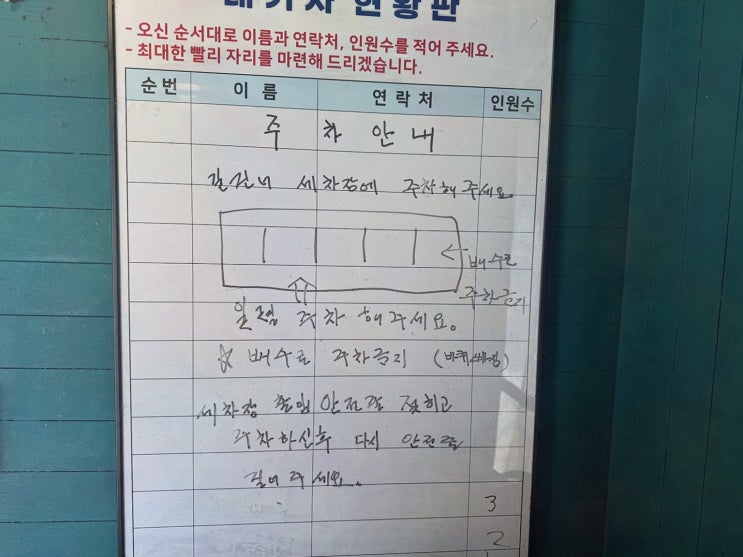 대기자 현황판
- 오신 순서대로 이름과 연락처, 인원수를 적어 주세요.
- 최대한 빨리 자리를 마련해 드리겠습니다.
순번 이름 연락처 인원수
주차안내
길건너 세차장에 주차해 주세요.
← 배수로
주차금지
일렬 주차해주세요.
☆ 배수로 주차금지
세차장 출입 안전줄 젖히고
주차하신후 다시 안전줄
걸어주세요.
3
2